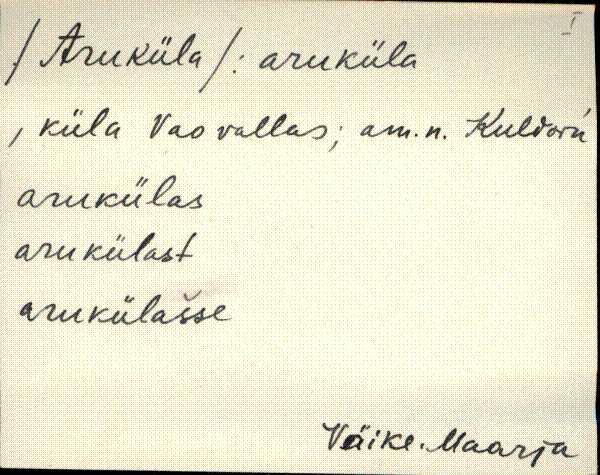 I
/Aruküla/: aruküla
, küla Vao vallas; am.n. Kuldorú
arukülas
arukülast
arukülašse
Väike-Maarja